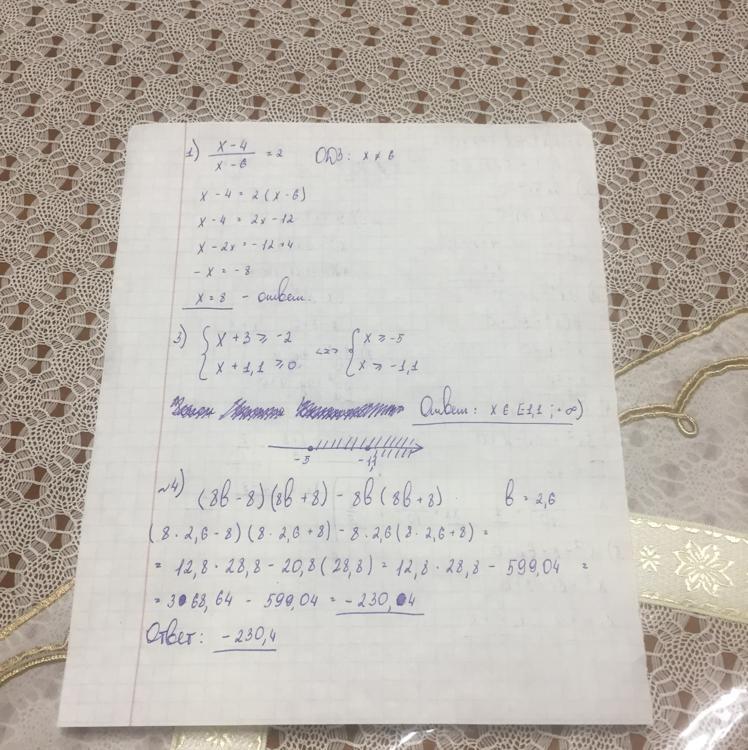 1) (x-4)/(x-6) = 2 ОДЗ: x ≠ 6
x - 4 = 2(x-6)
x - 4 = 2x - 12
x - 2x = -12+4
-x = -8
x = 8 - ответ.
3) { x + 3 ≥ -2 <=> { x ≥ -5
x + 1,1 ≥ 0 x ≥ -1,1
Ответ: x ∈ [-1,1 ; +∞)
-5 -1,1
№4) (8b-8)(8b+8) - 8b(8b+8) b = 2,6
(8·2,6-8)(8·2,6+8) - 8·2,6(8·2,6+8) =
= 12,8·28,8 - 20,8(28,8) = 12,8·28,8 - 599,04 =
= 368,64 - 599,04 = -230,4
Ответ: -230,4